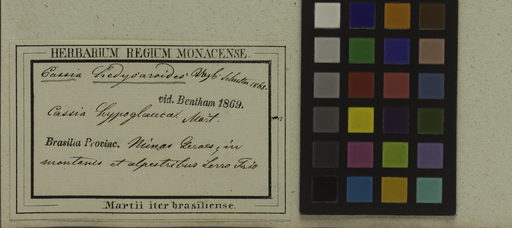 HERBARIUM REGIUM MONACENSE.
Cassia hedysaroides Vogel
vid. Bentham 1869.
Cassia hypoglauca Mart.
Brasilia Provinc. Minas Geraes, in
montanis et alpestribus Serro Frio
Martii iter brasiliense.